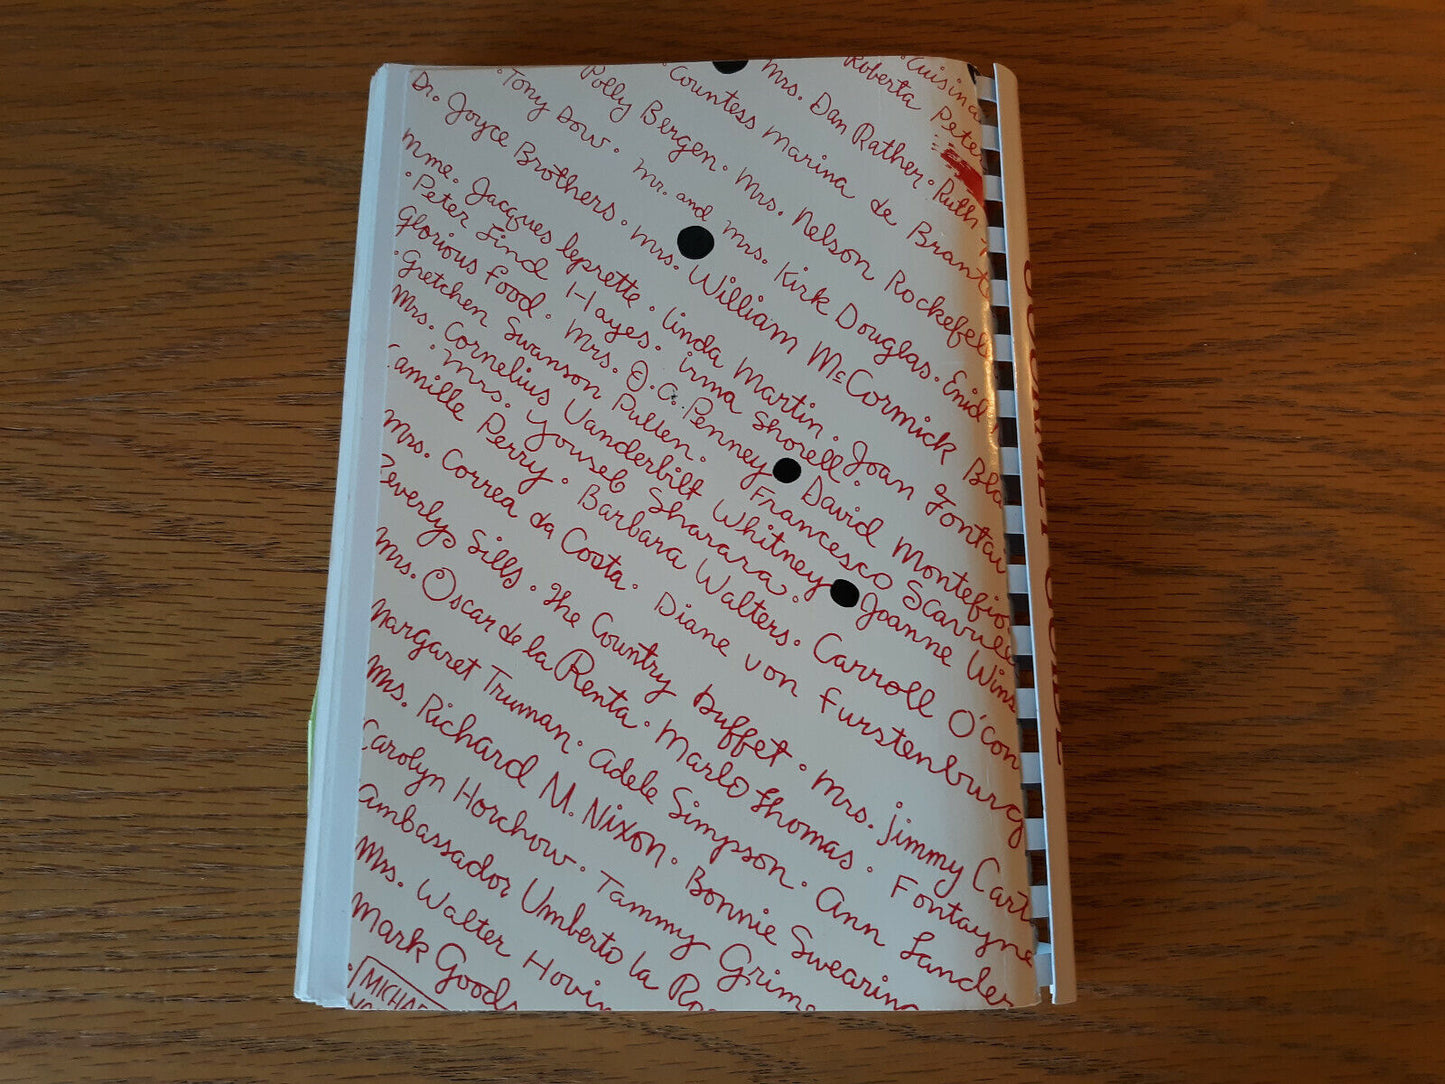 · Cuisina
Roberta Peter
Mrs. Dan Rather · Ruth
· Countess Marina de Brant
Polly Bergen · Mrs. Nelson Rockefel
· Tony Dow · Mr. and Mrs. Kirk Douglas · Enid
Dr. Joyce Brothers · Mrs. William McCormick Bla
Mme. Jacques Leprette · Linda Martin · Joan Fontai
· Peter Lind Hayes · Irma Shorell
Glorious Food · Mrs. J.C. Penney David Montefior
· Gretchen Swanson Pullen · Francesco Scavull
Mrs. Cornelius Vanderbilt Whitney Joanne Wins
· Mrs. Youseb Sharara ·
Camille Perry · Barbara Walters · Carroll O'Con
Mrs. Correa da Costa · Diane von Furstenburg
Beverly Sills · The Country Buffet · Mrs. Jimmy Cart
Mrs. Oscar de la Renta · Marlo Thomas · Fontayne
Margaret Truman · Adele Simpson · Ann Lander
Mrs. Richard M. Nixon · Bonnie Swearing
Carolyn Horchow · Tammy Grim
Ambassador Umberto la Ro
Mrs. Walter Hovin
Mark Goods
· MICHA